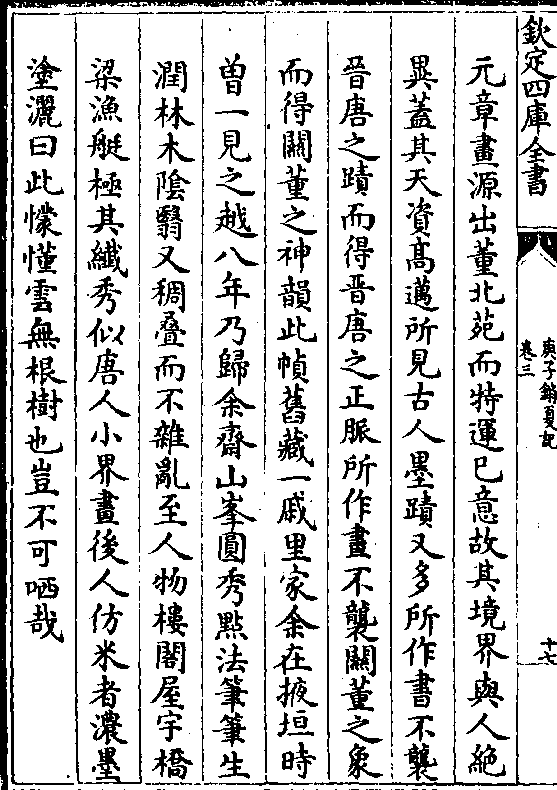 欽定四庫全書
庚子銷夏記
卷三
十七
元章畫源出董北苑而特運已意故其境界與人絶
異蓋其天資高邁所見古人墨蹟又多所作書不襲
晉唐之蹟而得晉唐之正脈所作畫不襲關董之象
而得關董之神韻此幀舊藏一戚里家余在掖垣時
曽一見之越八年乃歸余齋山峯圓秀㸃法筆筆生
潤林木陰翳又稠叠而不雜亂至人物樓閣屋宇橋
梁漁艇極其纖秀似唐人小界畫後人仿米者濃墨
塗灑曰此懞懂雲無根樹也豈不可哂哉